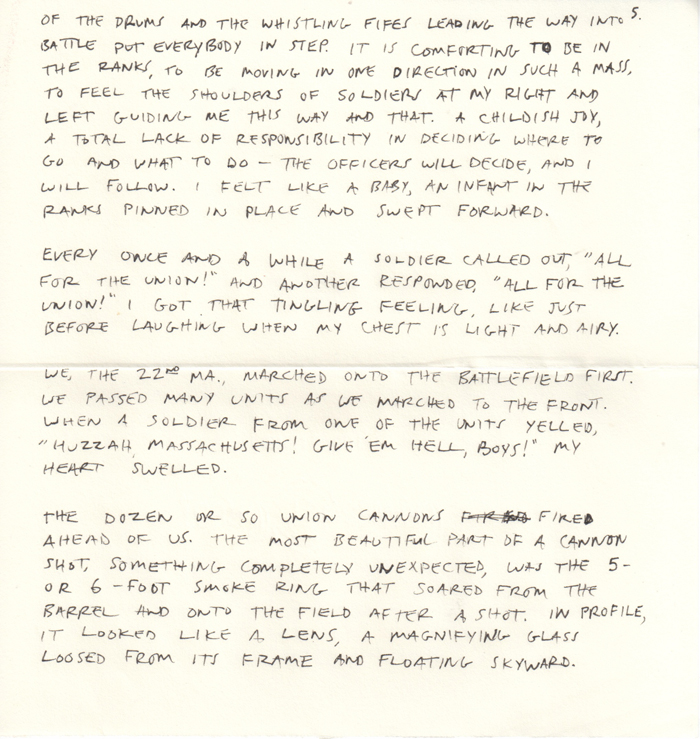 OF THE DRUMS AND THE WHISTLING FIFES LEADING THE WAY INTO 5.
BATTLE PUT EVERYBODY IN STEP. IT IS COMFORTING TO BE IN
THE RANKS, TO BE MOVING IN ONE DIRECTION IN SUCH A MASS,
TO FEEL THE SHOULDERS OF SOLDIERS AT MY RIGHT AND
LEFT GUIDING ME THIS WAY AND THAT. A CHILDISH JOY,
A TOTAL LACK OF RESPONSIBILITY IN DECIDING WHERE TO
GO AND WHAT TO DO – THE OFFICERS WILL DECIDE, AND I
WILL FOLLOW. I FELT LIKE A BABY, AN INFANT IN THE
RANKS PINNED IN PLACE AND SWEPT FORWARD.
EVERY ONCE AND A WHILE A SOLDIER CALLED OUT, "ALL
FOR THE UNION!" AND ANOTHER RESPONDED, "ALL FOR THE
UNION!" I GOT THAT TINGLING FEELING, LIKE JUST
BEFORE LAUGHING WHEN MY CHEST IS LIGHT AND AIRY.
WE, THE 22ND MA., MARCHED ONTO THE BATTLEFIELD FIRST.
WE PASSED MANY UNITS AS WE MARCHED TO THE FRONT.
WHEN A SOLDIER FROM ONE OF THE UNITS YELLED,
"HUZZAH, MASSACHUSETTS! GIVE 'EM HELL, BOYS!" MY
HEART SWELLED.
THE DOZEN OR SO UNION CANNONS FIRED
AHEAD OF US. THE MOST BEAUTIFUL PART OF A CANNON
SHOT, SOMETHING COMPLETELY UNEXPECTED, WAS THE 5-
OR 6-FOOT SMOKE RING THAT SOARED FROM THE
BARREL AND ONTO THE FIELD AFTER A SHOT. IN PROFILE,
IT LOOKED LIKE A LENS, A MAGNIFYING GLASS
LOOSED FROM ITS FRAME AND FLOATING SKYWARD.